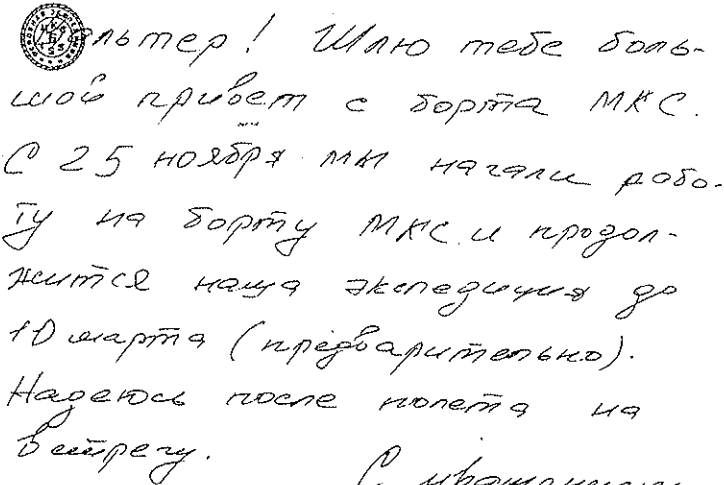 Вальтер! Шлю тебе боль-
шой привет с борта МКС.
С 25 ноября мы начали рабо-
ту на борту МКС и продол-
жится наша экспедиция до
10 марта (предварительно).
Надеюсь после полета на
встречу.
С